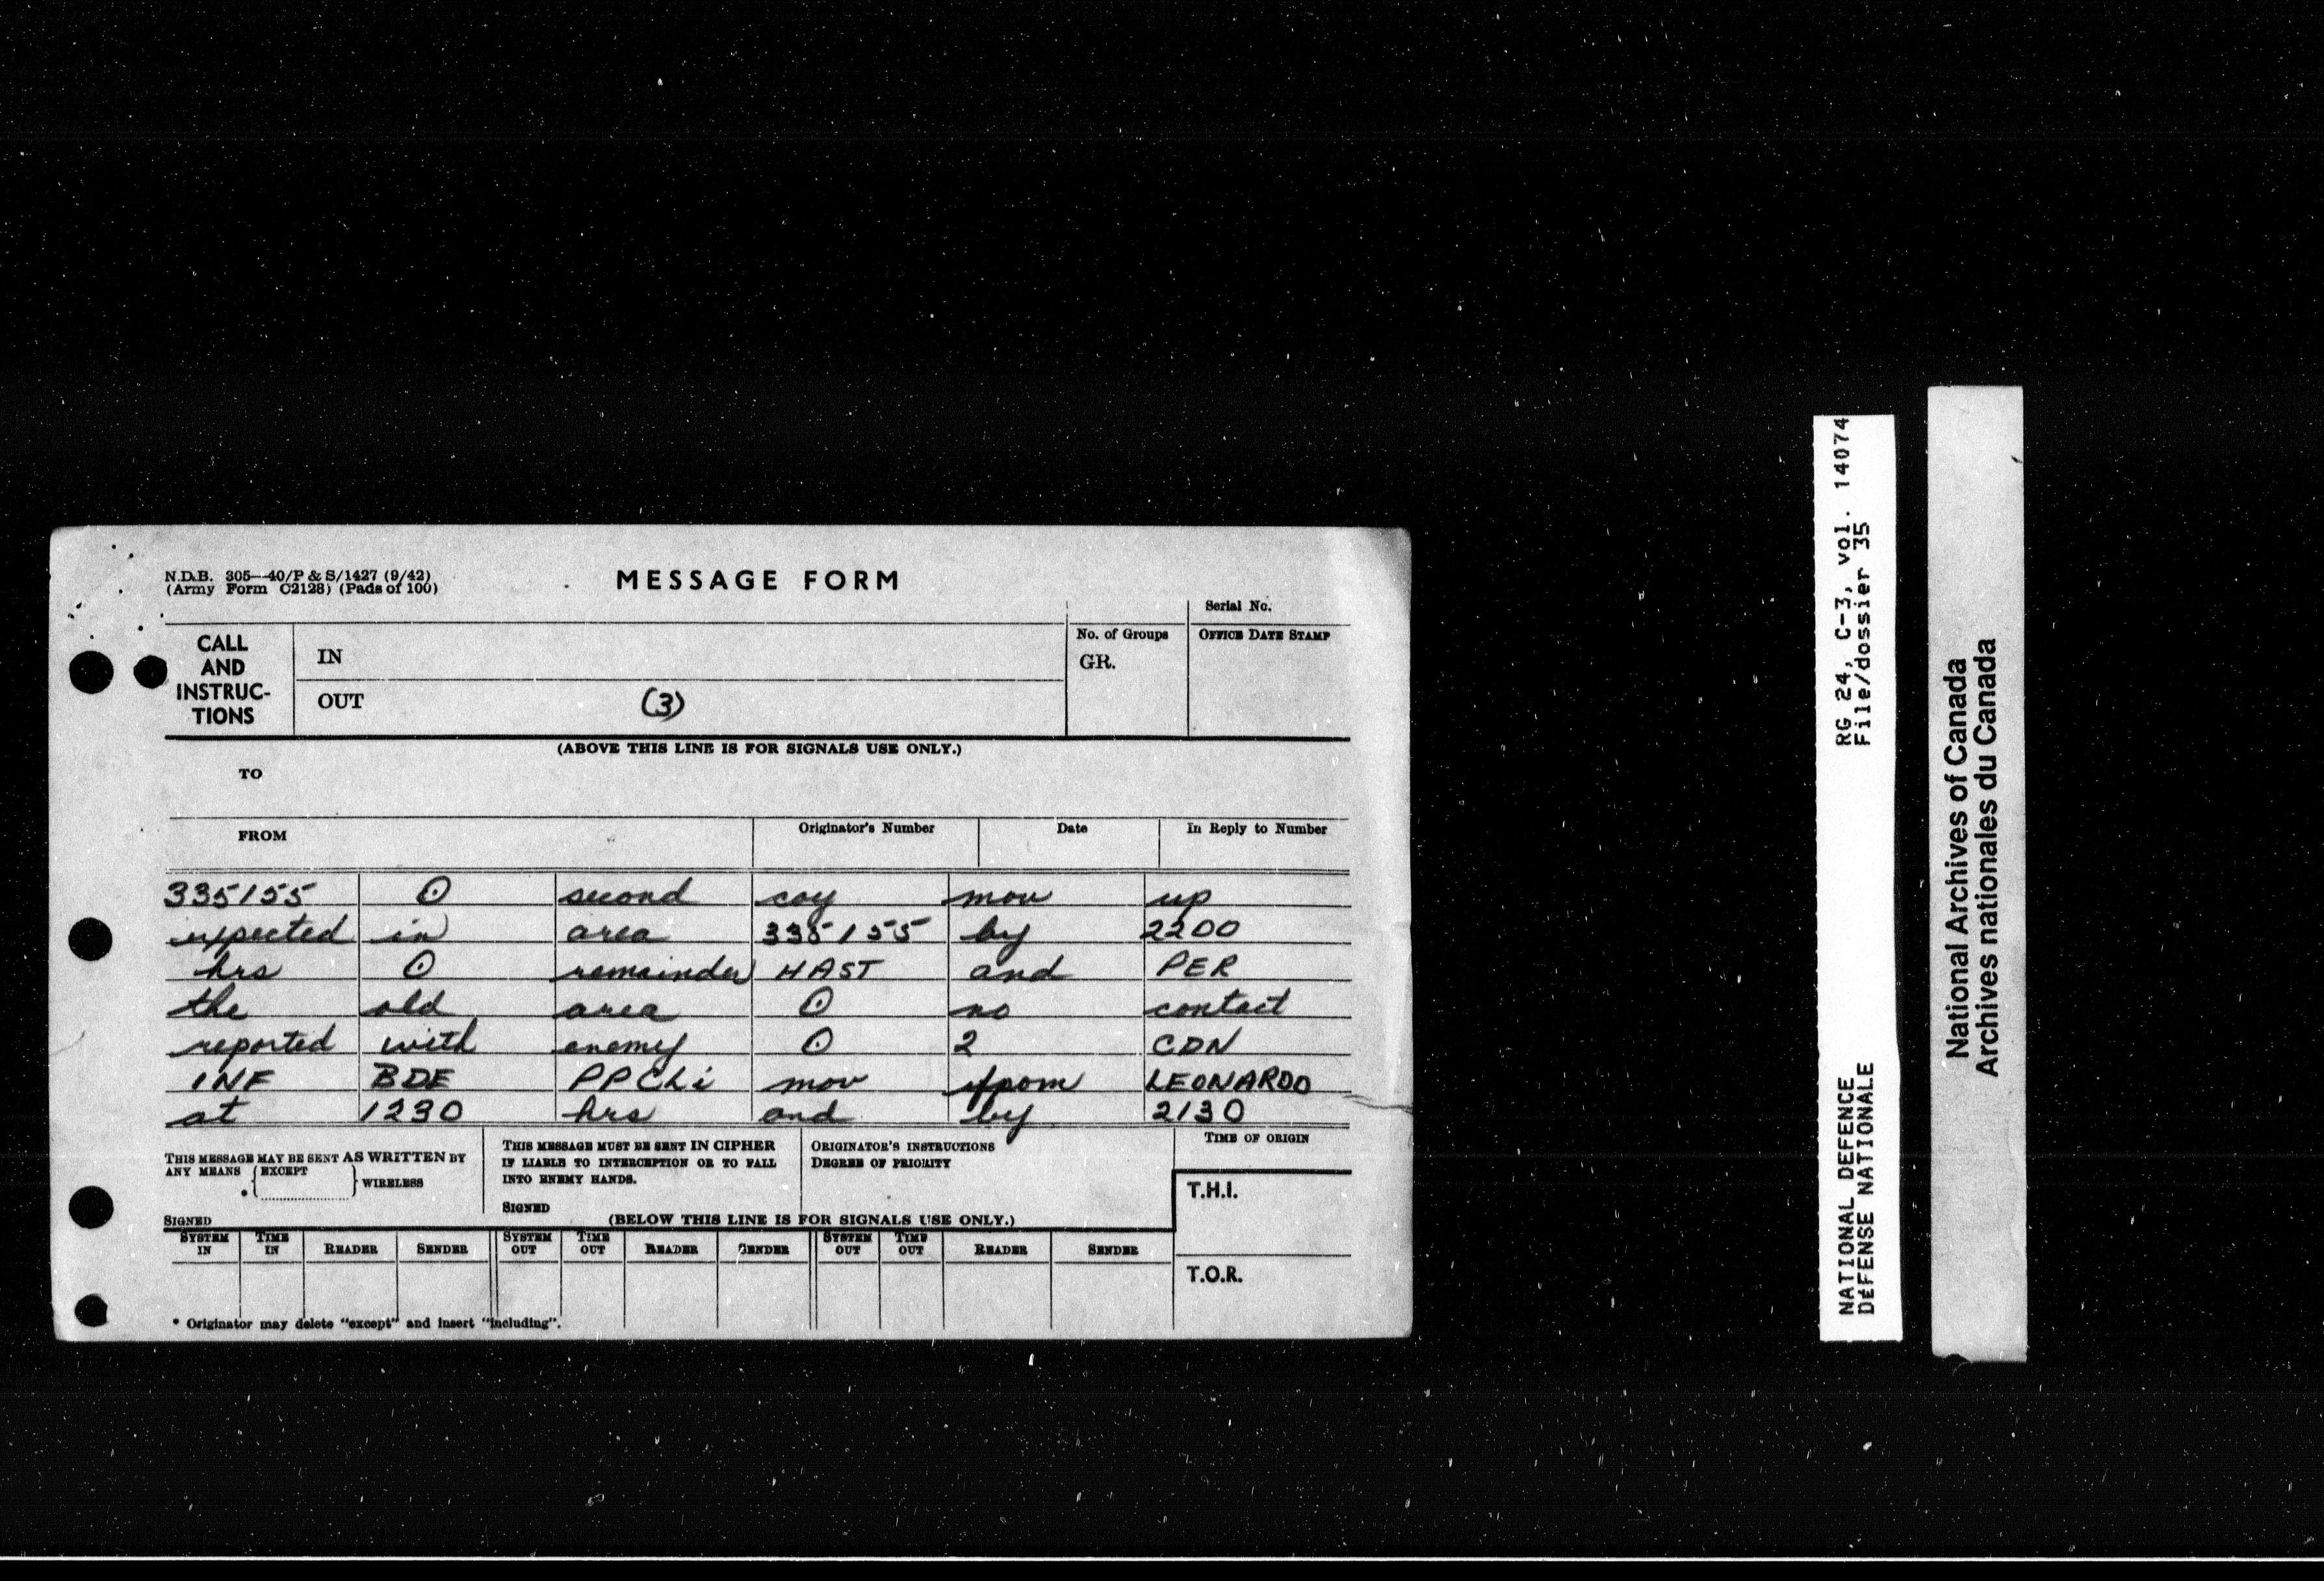 N.D.B. 305—40/P & S/1427 (9/42)
(Army Form C2128) (Pads of 100)
MESSAGE FORM
Serial No.
CALL AND INSTRUC-TIONS
IN
No. of Groups
GR.
OFFICE DATE STAMP
OUT (3)
(ABOVE THIS LINE IS FOR SIGNALS USE ONLY.)
TO
FROM Originator's Number Date In Reply to Number
335155 ⊙ second coy mov up
expected in area 335155 by 2200
hrs ⊙ remainder HAST and PER
the old area ⊙ no contact
reported with enemy ⊙ 2 CDN
INF BDE PPCLi mov from LEONARDO
at 1230 hrs and by 2130
THIS MESSAGE MAY BE SENT AS WRITTEN BY
ANY MEANS EXCEPT
* WIRELESS
SIGNED
THIS MESSAGE MUST BE SENT IN CIPHER
IF LIABLE TO INTERCEPTION OR TO FALL
INTO ENEMY HANDS.
SIGNED
ORIGINATOR'S INSTRUCTIONS
DEGREE OF PRIORITY
TIME OF ORIGIN
T.H.I.
(BELOW THIS LINE IS FOR SIGNALS USE ONLY.)
SYSTEM IN TIME IN READER SENDER SYSTEM OUT TIME OUT READER SENDER SYSTEM OUT TIME OUT READER SENDER
T.O.R.
* Originator may delete "except" and insert "including".
RG 24, C-3, vol. 14074
File/dossier 35
NATIONAL DEFENCE
DÉFENSE NATIONALE
National Archives of Canada
Archives nationales du Canada